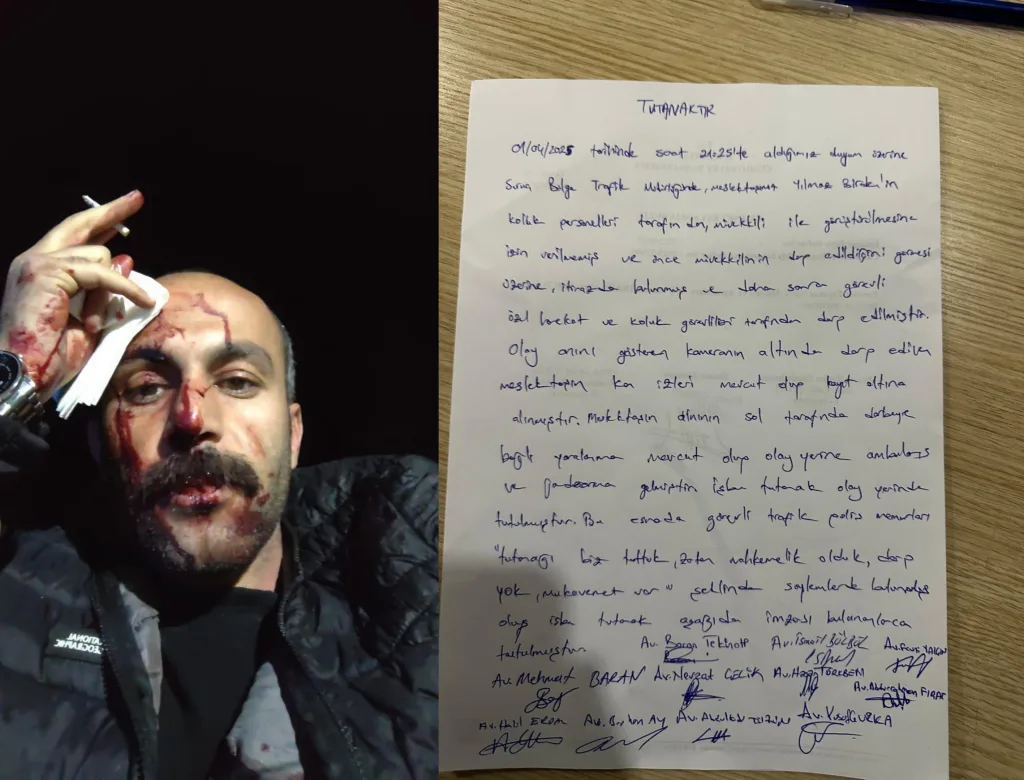 TUTANAKTIR
01/04/2025 tarihinde saat 21:25'te aldığımız duyum üzerine
Suruç Bölge Trafik meslektaşımız Yılmaz
kolluk personelleri tarafından, müvekkili ile görüştürülmesine
izin verilmemiş ve önce müvekkilinin darp edildiğini görmesi
üzerine, itirazda bulunmuş ve daha sonra görevli
özel harekat ve kolluk görevlileri tarafından darp edilmiştir.
Olay anını gösteren kameranın altında darp edilen
meslektaşın kan izleri mevcut olup kayıt altına
alınmıştır. Meslektaşın alnının sol tarafında darbeye
bağlı yaralanma mevcut olup olay yerine ambulans
ve gelmiştir. İşbu tutanak olay yerinde
tutulmuştur. Bu esnada görevli trafik polis memurları
"tutanağı biz tuttuk, zaten mahkemelik olduk, darp
yok, mukavemet var" şeklinde söylemlerde bulunmuş
olup işbu tutanak aşağıda imzası bulunanlarca
tutulmuştur. Av. Baran Av. İsmail
Av. Mehmet BARAN Av. Nevzat ÇELİK Av.
Av. FIRAT
Av. Halil Av. Av. Av. Yusuf
NATIONAL
GEOGRAPHIC